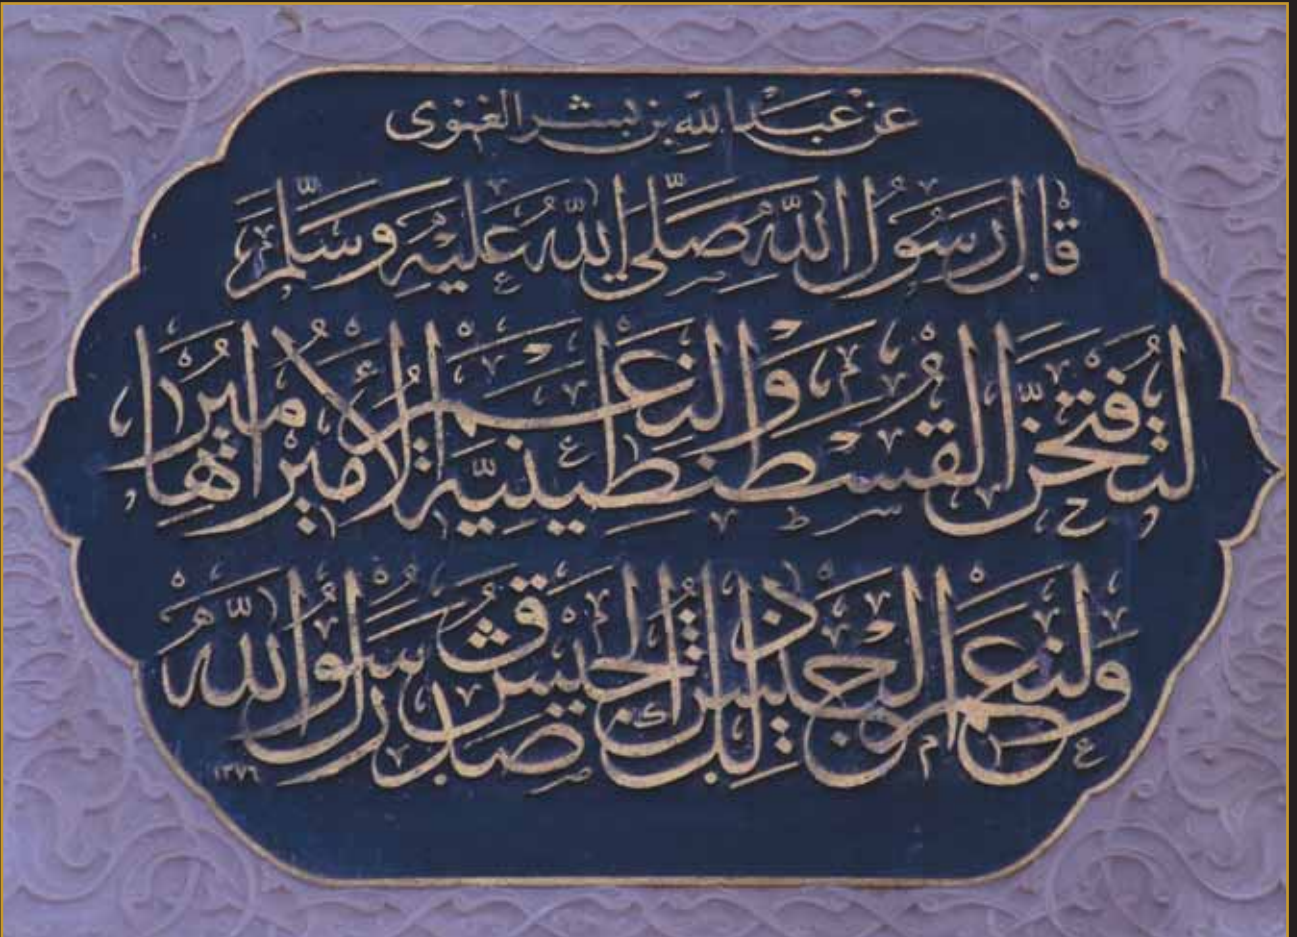 عن عبد الله بن بشر الغنوى
قال رسول الله صلى الله عليه وسلم
لتفتحن القسطنطينية ولنعم الأمير أميرها
ولنعم الجيش ذلك الجيش صدق رسول الله
١٣٧٦